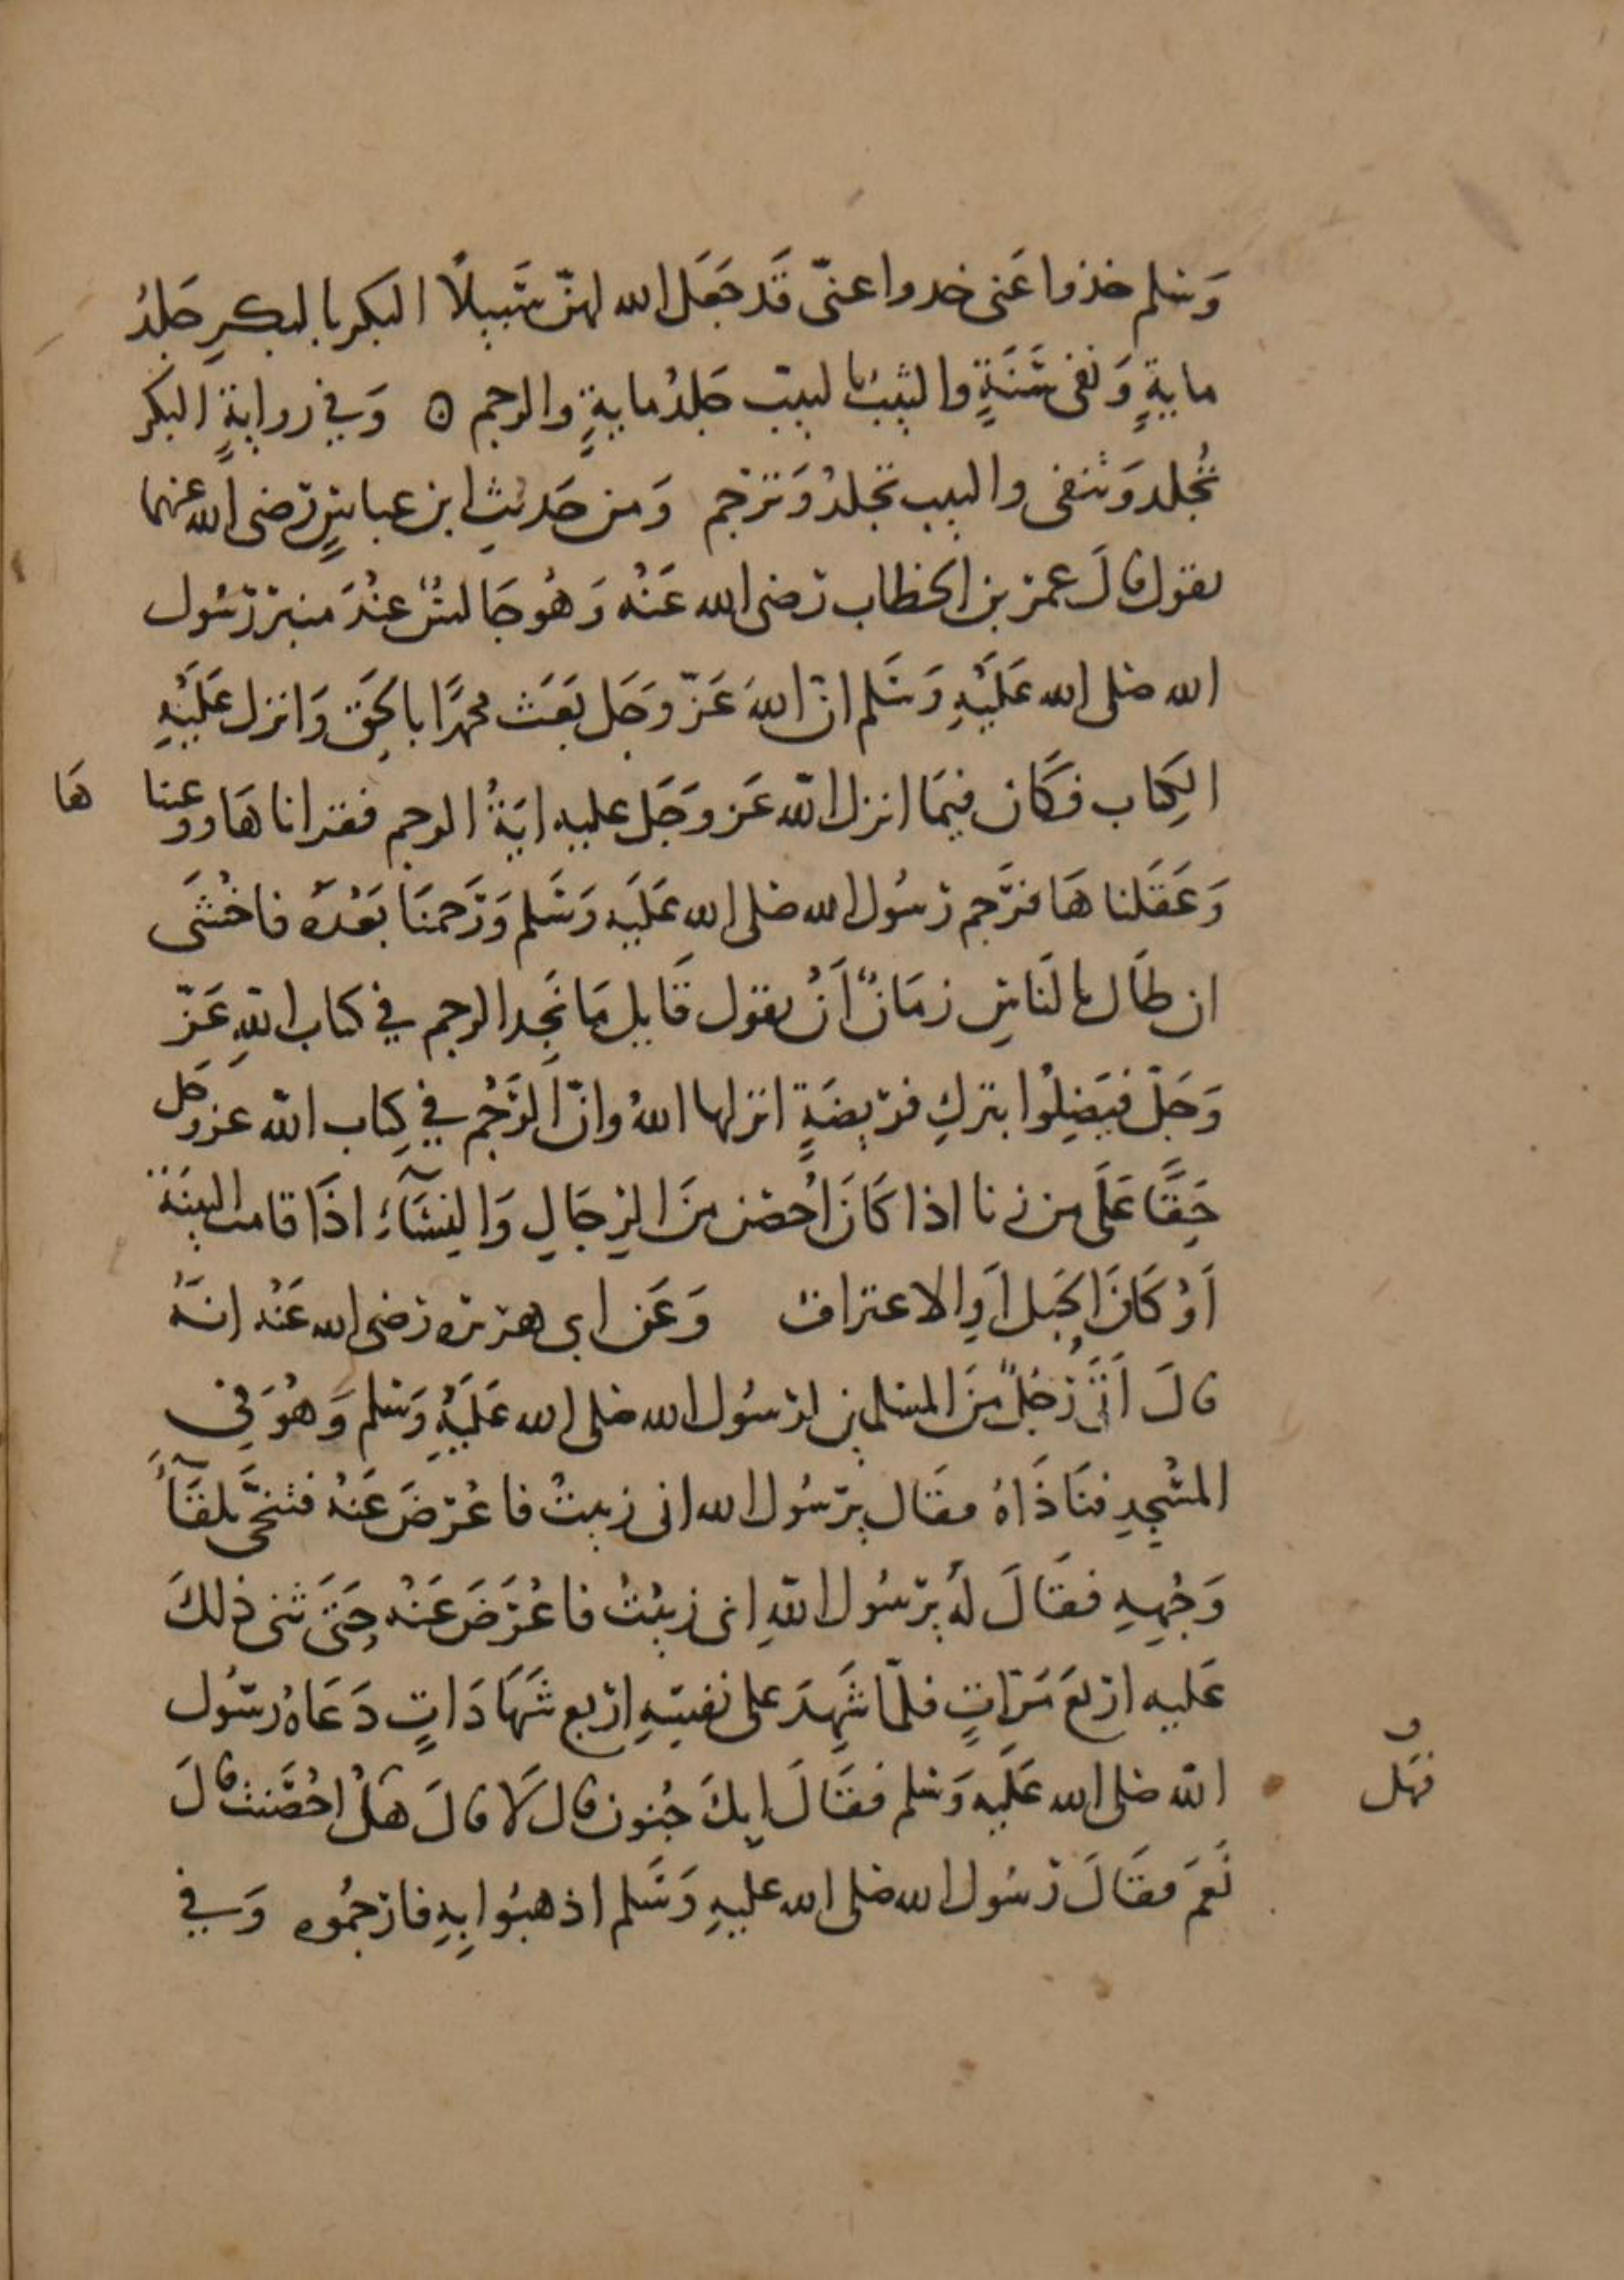 وَسَلم خذوا عَنى خدوا عنّى قَد جَعَل الله لهنّ سَبيلًا البكر بالبكرِ جَلدُ
مايةٍ وَنفى سَنَةٍ والثيبُ بالبيب جَلدُ مايةٍ والرجم ٥ وَفي روايةٍ البكر
تُجلد وَتنفى والبيب تجلدُ وَترجم وَمن حَديثِ ابن عباسٍ رَضى الله عنهما
يقول قالَ عمر بن الخطاب رَضى الله عَنْه وَهُو جَالسٌ عِنْدَ منبر رَسُول
الله صلى الله عَلَيْهِ وَسَلم انّ اللهَ عَزّ وجَل بَعَث محمدًا بالحَق وَانزل عَلَيْهِ
الكِتاب فكَان فيمَا انزل الله عَز وَجَل عليه ايَةُ الرجم فقراناهَا ووعينا هَا
وَعَقَلناهَا فرَجم رَسُول الله صلى الله عَلَيه وَسَلم وَرَجمنَا بَعْدَه فاخْشَى
ان طَال بالنَاسِ زمَانٌ أنْ يقول قَايل مَا نَجد الرجم في كتاب اللهِ عَزّ
وَجَلّ فيَضِلُوا بتركِ فريضَةٍ انزلها اللهُ وانّ الرَّجْم في كِتاب الله عز وجَل
حَقًّا عَلَى من زنا اذا كَانَ اُحصن منَ الرِجَالِ وَالنِسَآءِ اذَا قامت البينَة
اَوْ كَانَ الحَبل اَوِ الاعتراف وَعَن ابى هريره رَضى الله عَنْه انهُ
قالَ اَتَى رَجُلٌ منَ المسلمين لرسُول الله صلى الله عَلَيْهِ وَسَلم وَهُوَ في
المسْجِدِ فنَادَاهُ فقَال يرسُول الله انى زنيتُ فاعْرَضَ عَنهُ فتنحّى تلقآءَ
وَجْهِهِ فقَالَ لهُ يرسُول اللهِ انى زنيْتُ فاعْرَضَ عَنْه حَتَى ثنى ذلكَ
عَليه اربعَ مَرَاتٍ فلمّا شَهِدَ على نفسِهِ اربع شَهَادَاتٍ دَعَاهُ رسُول
الله صلى الله عَليه وَسَلم فقَالَ ابِكَ جُنون قال لَا قالَ هَلْ احْصَنت قالَ
و فهَل
نَعَمَ فقَالَ رَسُول الله صلى الله عليهِ وَسَلم اذهبُوا بِهِ فارجمُوه وَفي